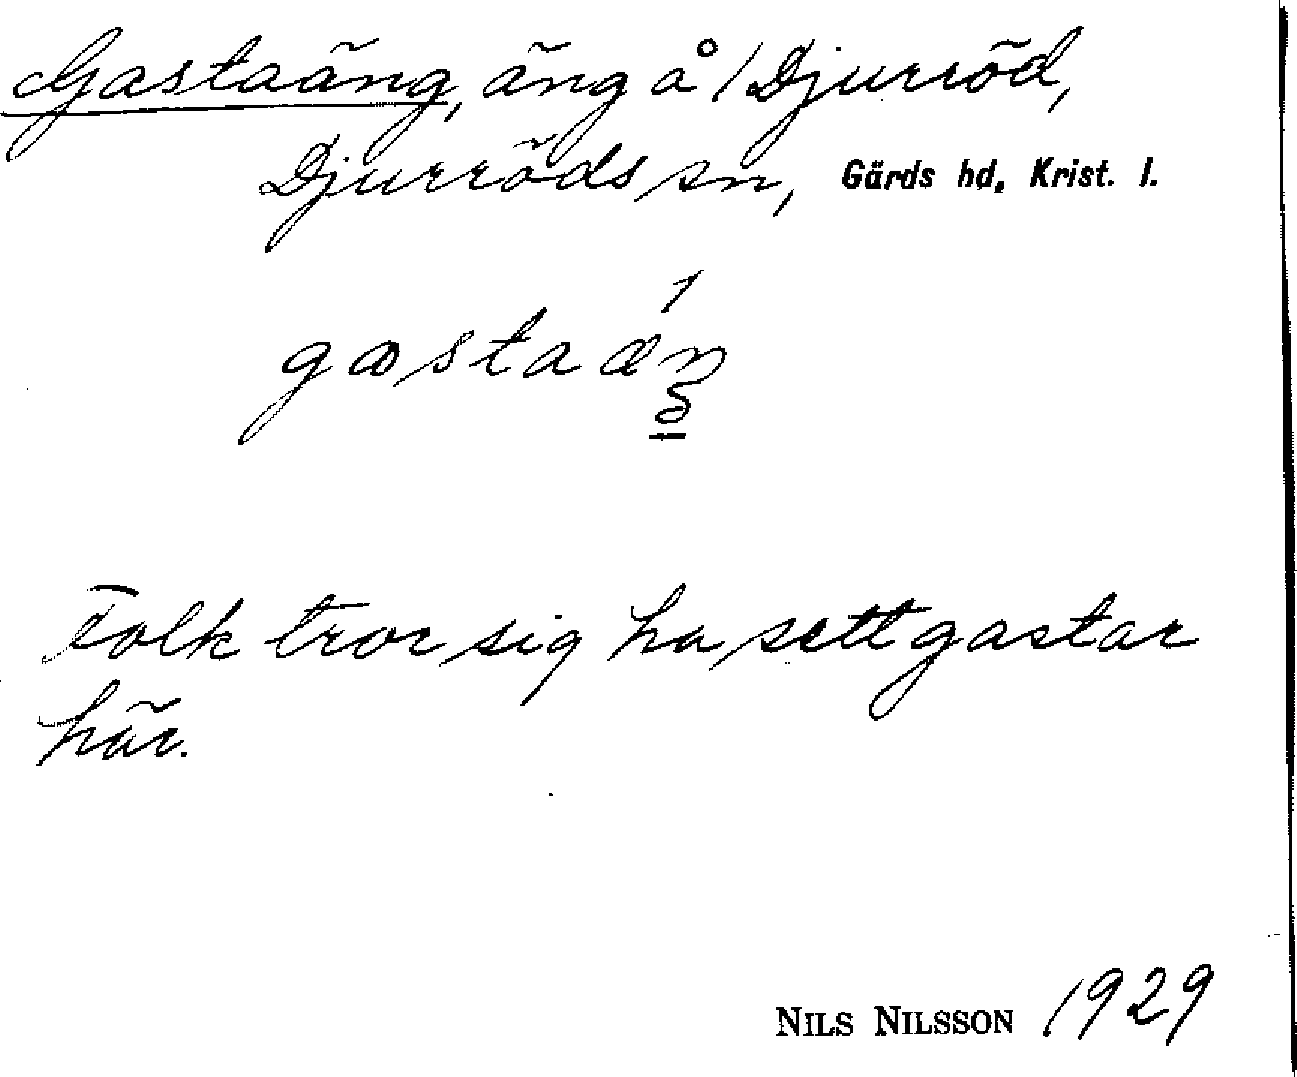 Gastaäng, äng å 1 Djurröd,
Djurröds sn, Gärds hd, Krist. l.
Folk tror sig ha sett gastar
här.
NILS NILSSON 1929